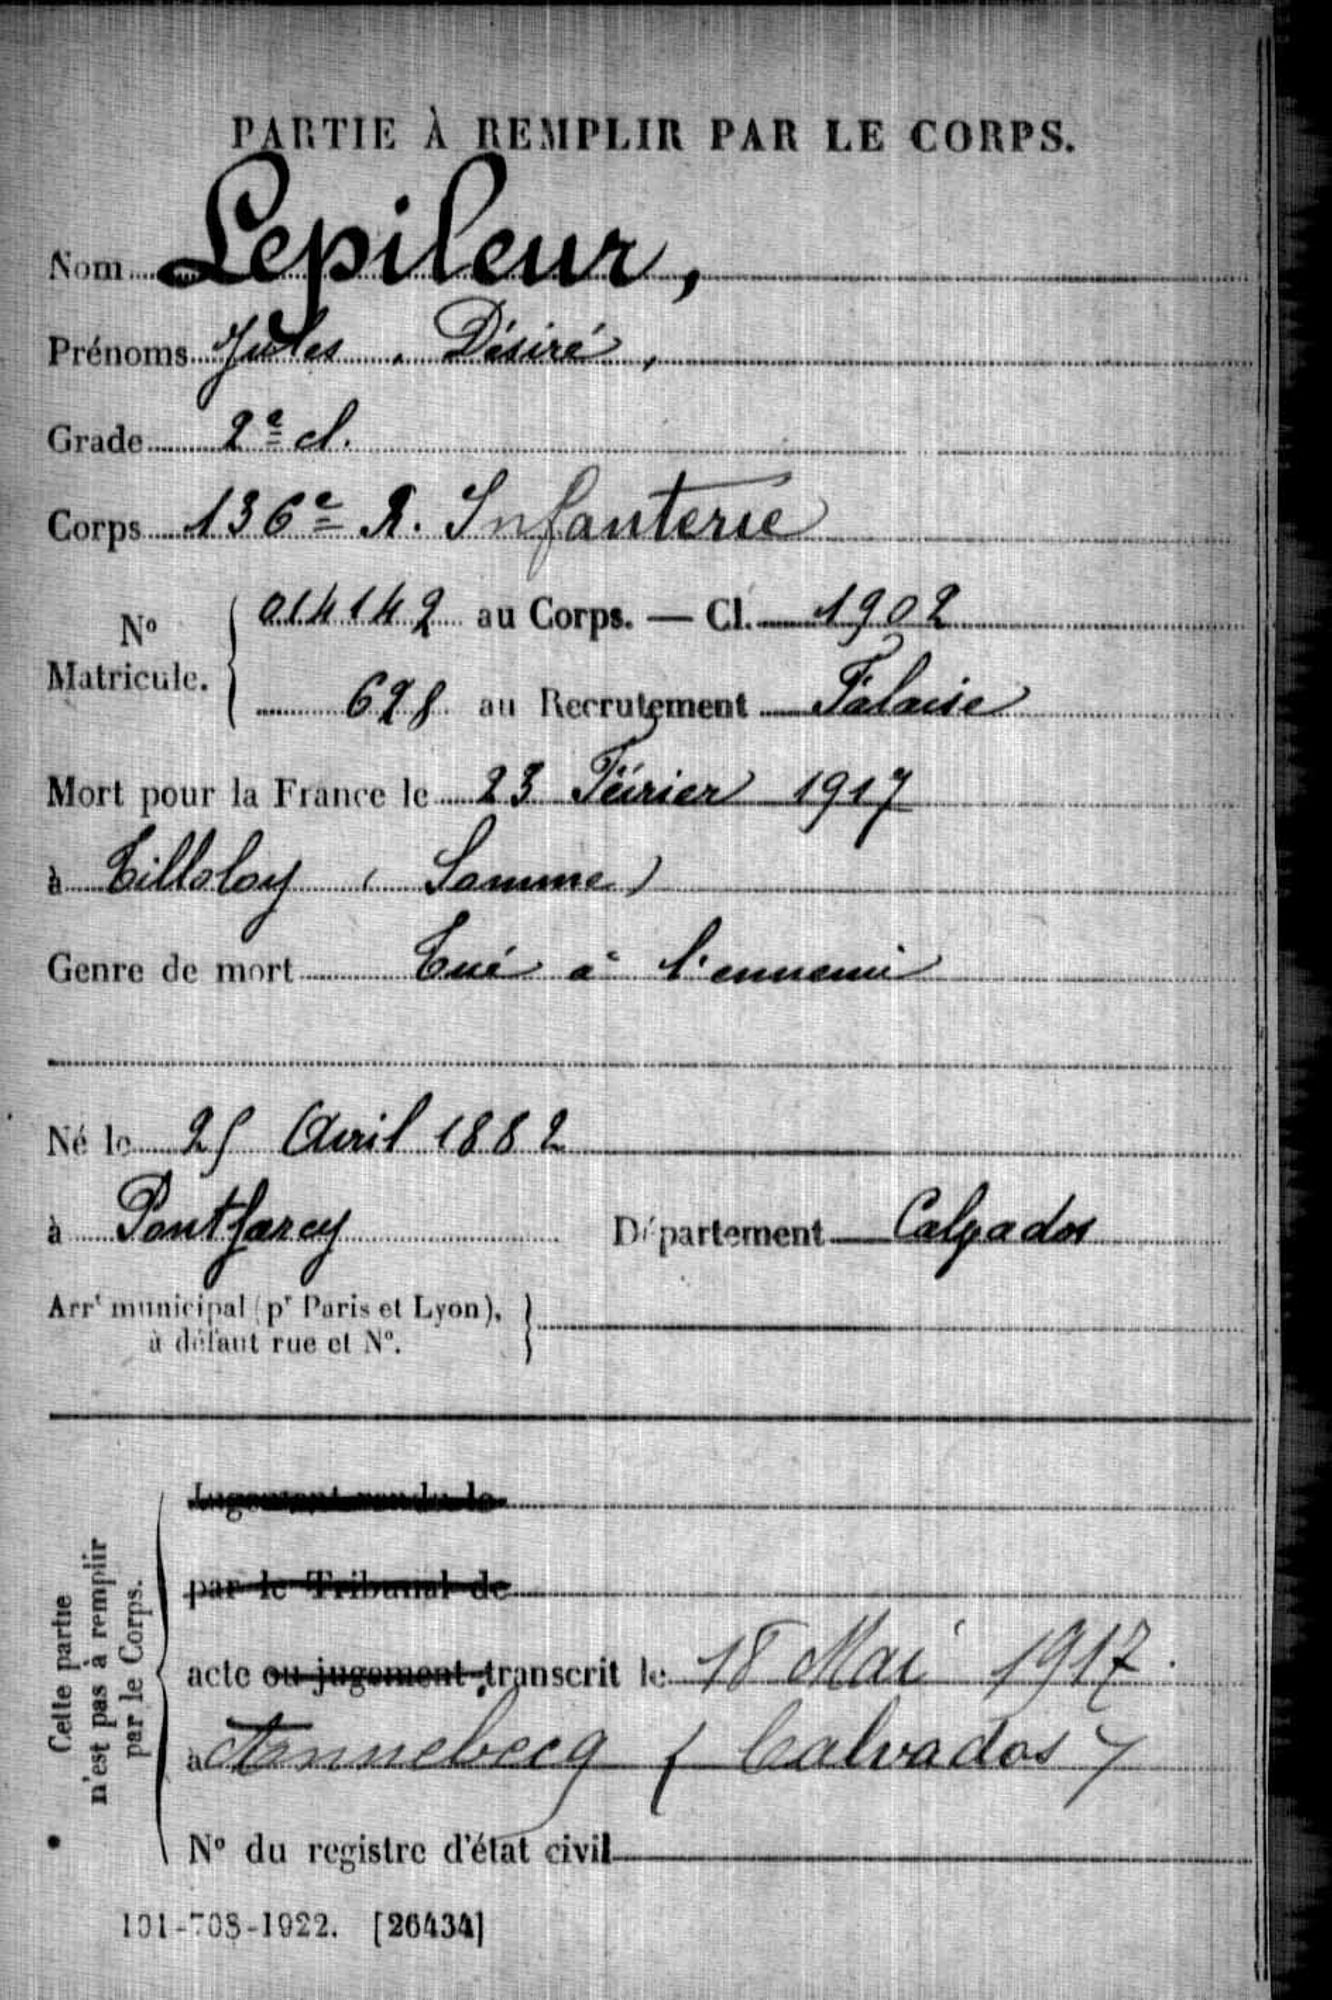 PARTIE À REMPLIR PAR LE CORPS.
Nom Lepileur,
Prénoms Jules, Désiré,
Grade 2e cl.
Corps 136e R. Infanterie
No Matricule. 014142 au Corps. — Cl. 1902
628 au Recrutement Falaise
Mort pour la France le 23 Février 1917
à Tilloloy (Somme)
Genre de mort Tué à l'ennemi
Né le 25 Avril 1882
à Pontfarcy Département Calvados
Arrt municipal (pr Paris et Lyon),
à défaut rue et No.
Cette partie
n'est pas à remplir
par le Corps.
Jugement rendu le
par le Tribunal de
acte ou jugement transcrit le 18 Mai 1917.
à Annebecq (Calvados)
No du registre d'état civil
101-708-1922. [26434]